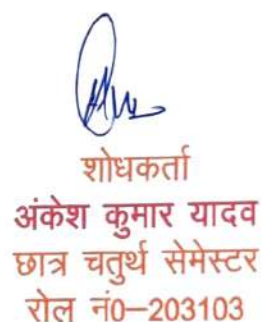 शोधकर्ता
अंकेश कुमार यादव
छात्र चतुर्थ सेमेस्टर
रोल नं0–203103